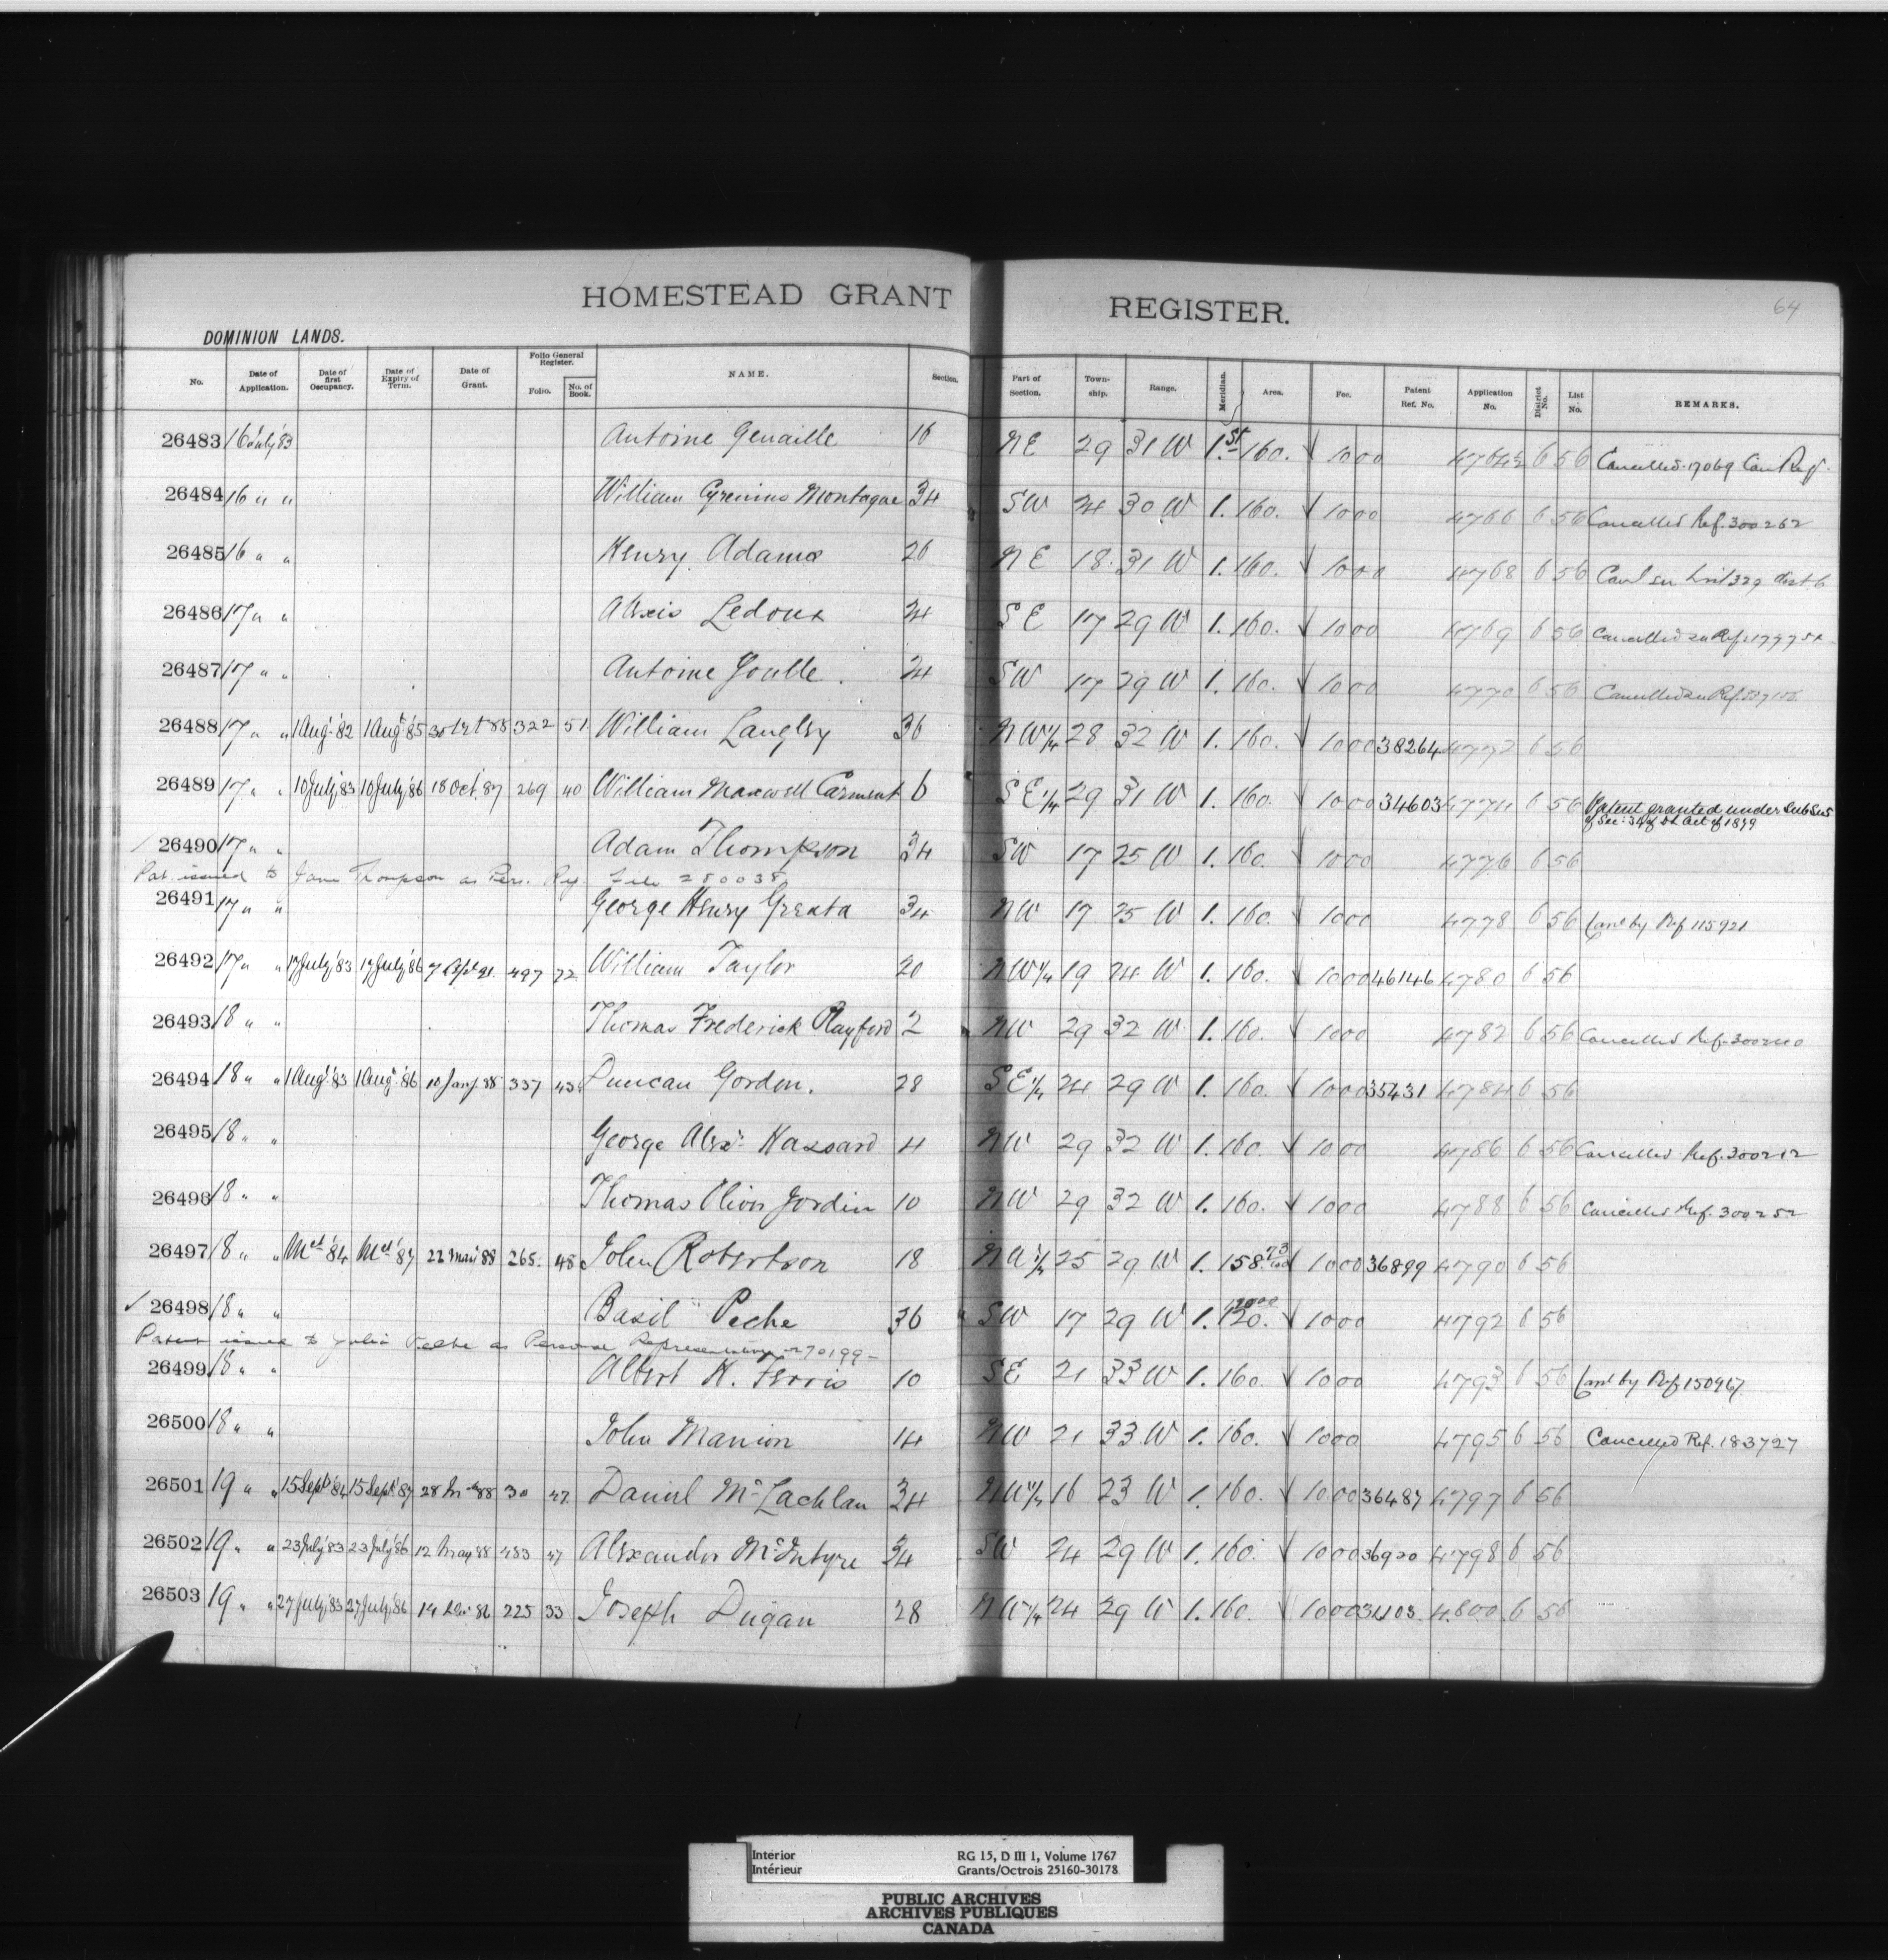 64
HOMESTEAD GRANT REGISTER.
DOMINION LANDS.
No. Date of Application. Date of first Occupancy. Date of Expiry of Term. Date of Grant. Folio General Register. Folio. No. of Book. NAME. Section. Part of Section. Township. Range. Meridian. Area. Fee. Patent Ref. No. Application No. District No. List No. REMARKS.
26483 16 July '83 Antoine Genaille 16 NE 29 31 W 1.st 160. 1000 6 56 Cancelled 17069 Can Ref.
26484 16 " " William Cyrenius Montague 34 SW 24 30 W 1. 160. 1000 4766 6 56 Cancelled Ref. 300262
26485 16 " " Henry Adams 26 NE 18 31 W 1. 160. 1000 4768 6 56
26486 17 " " Alexis Ledoux 24 SE 17 29 W 1. 160. 1000 4769 6 56 Cancelled
26487 17 " " Antoine 24 SW 17 29 W 1. 160. 1000 4770 6 56 Cancelled
26488 17 " " 1 Aug. '82 1 Augt. '85 322 51 William Langley 36 NW1/4 28 32 W 1. 160. 1000 38264 4772 6 56
26489 17 " " 10 July '83 10 July '86 18 Oct. '87 269 40 William Maxwell Carment 6 SE1/4 29 31 W 1. 160. 1000 34603 4774 6 56 Patent granted under Sub Sec 5
of Sec: 34 of D L Act of 1879
26490 17 " " Adam Thompson 34 SW 17 25 W 1. 160. 1000 4776 6 56
Pat. issued to Jane Thompson as Pers. Rep. File 280038
26491 17 " " George Henry Greata 34 NW 17 25 W 1. 160. 1000 4778 6 56 Canl by Ref 115921
26492 17 " " 17 July '83 17 July '86 497 72 William Taylor 20 NW1/4 19 24 W 1. 160. 1000 46146 4780 6 56
26493 18 " " Thomas Frederick Playford 2 NW 29 32 W 1. 160. 1000 4782 6 56 Cancelled Ref.
26494 18 " " 1 Augt '83 1 Augt. '86 10 Jany 88 337 43 Duncan Gordon. 28 SE1/4 24 29 W 1. 160. 1000 35431 4784 6 56
26495 18 " " George Alexr. Hassard 4 NW 29 32 W 1. 160. 1000 4786 6 56 Cancelled Ref. 300212
26496 18 " " Thomas Oliver Jordin 10 NW 29 32 W 1. 160. 1000 4788 6 56 Cancelled Ref. 300252
26497 18 " " '84 '87 22 Mar. 88 265. 45 John Robertson 18 1/4 25 29 W 1. 158.73/100 1000 36899 4790 6 56
26498 18 " " Basil Peche 36 SW 17 29 W 1. 120. 1000 4792 6 56
Patent issued to Julia Peche as Personal Representative 270199
26499 18 " " Albert H. Ferris 10 SE 21 33 W 1. 160. 1000 4793 6 56 Canl by Ref 150967
26500 18 " " John Manion 14 NW 21 33 W 1. 160. 1000 4795 6 56 Cancelled Ref. 183727
26501 19 " " 15 Sept '84 15 Sept '87 30 47 Daniel McLachlan 34 NW1/4 16 23 W 1. 160. 1000 36487 4797 6 56
26502 19 " " 23 July '83 23 July '86 12 May 88 483 47 Alexander McIntyre 34 SW 24 29 W 1. 160. 1000 36920 4798 6 56
26503 19 " " 27 July '83 27 July '86 225 33 Joseph Dugan 28 NW1/4 24 29 W 1. 160. 1000 4800 6 56
Interior RG 15, D III 1, Volume 1767
Intérieur Grants/Octrois 25160-30178
PUBLIC ARCHIVES
ARCHIVES PUBLIQUES
CANADA